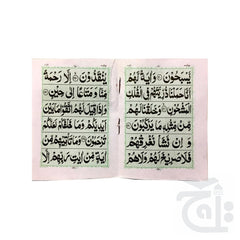 يَّسْبَحُوْنَ ۝ وَاٰيَةٌ لَّهُمْ
اَنَّا حَمَلْنَا ذُرِّيَّتَهُمْ فِي الْفُلْكِ
الْمَشْحُوْنِ ۝ وَخَلَقْنَا لَهُمْ
مِّنْ مِّثْلِهٖ مَا يَرْكَبُوْنَ ۝
وَ اِنْ نَّشَاْ نُغْرِقْهُمْ
فَلَا صَرِيْخَ لَهُمْ وَلَا هُمْ
يُنْقَذُوْنَ ۝ اِلَّا رَحْمَةً
مِّنَّا وَ مَتَاعًا اِلٰى حِيْنٍ ۝
وَاِذَا قِيْلَ لَهُمُ اتَّقُوْا مَا بَيْنَ
اَيْدِيْكُمْ وَمَا خَلْفَكُمْ لَعَلَّكُمْ
تُرْحَمُوْنَ ۝ وَمَا تَاْتِيْهِمْ مِّنْ
اٰيَةٍ مِّنْ اٰيٰتِ رَبِّهِمْ اِلَّا